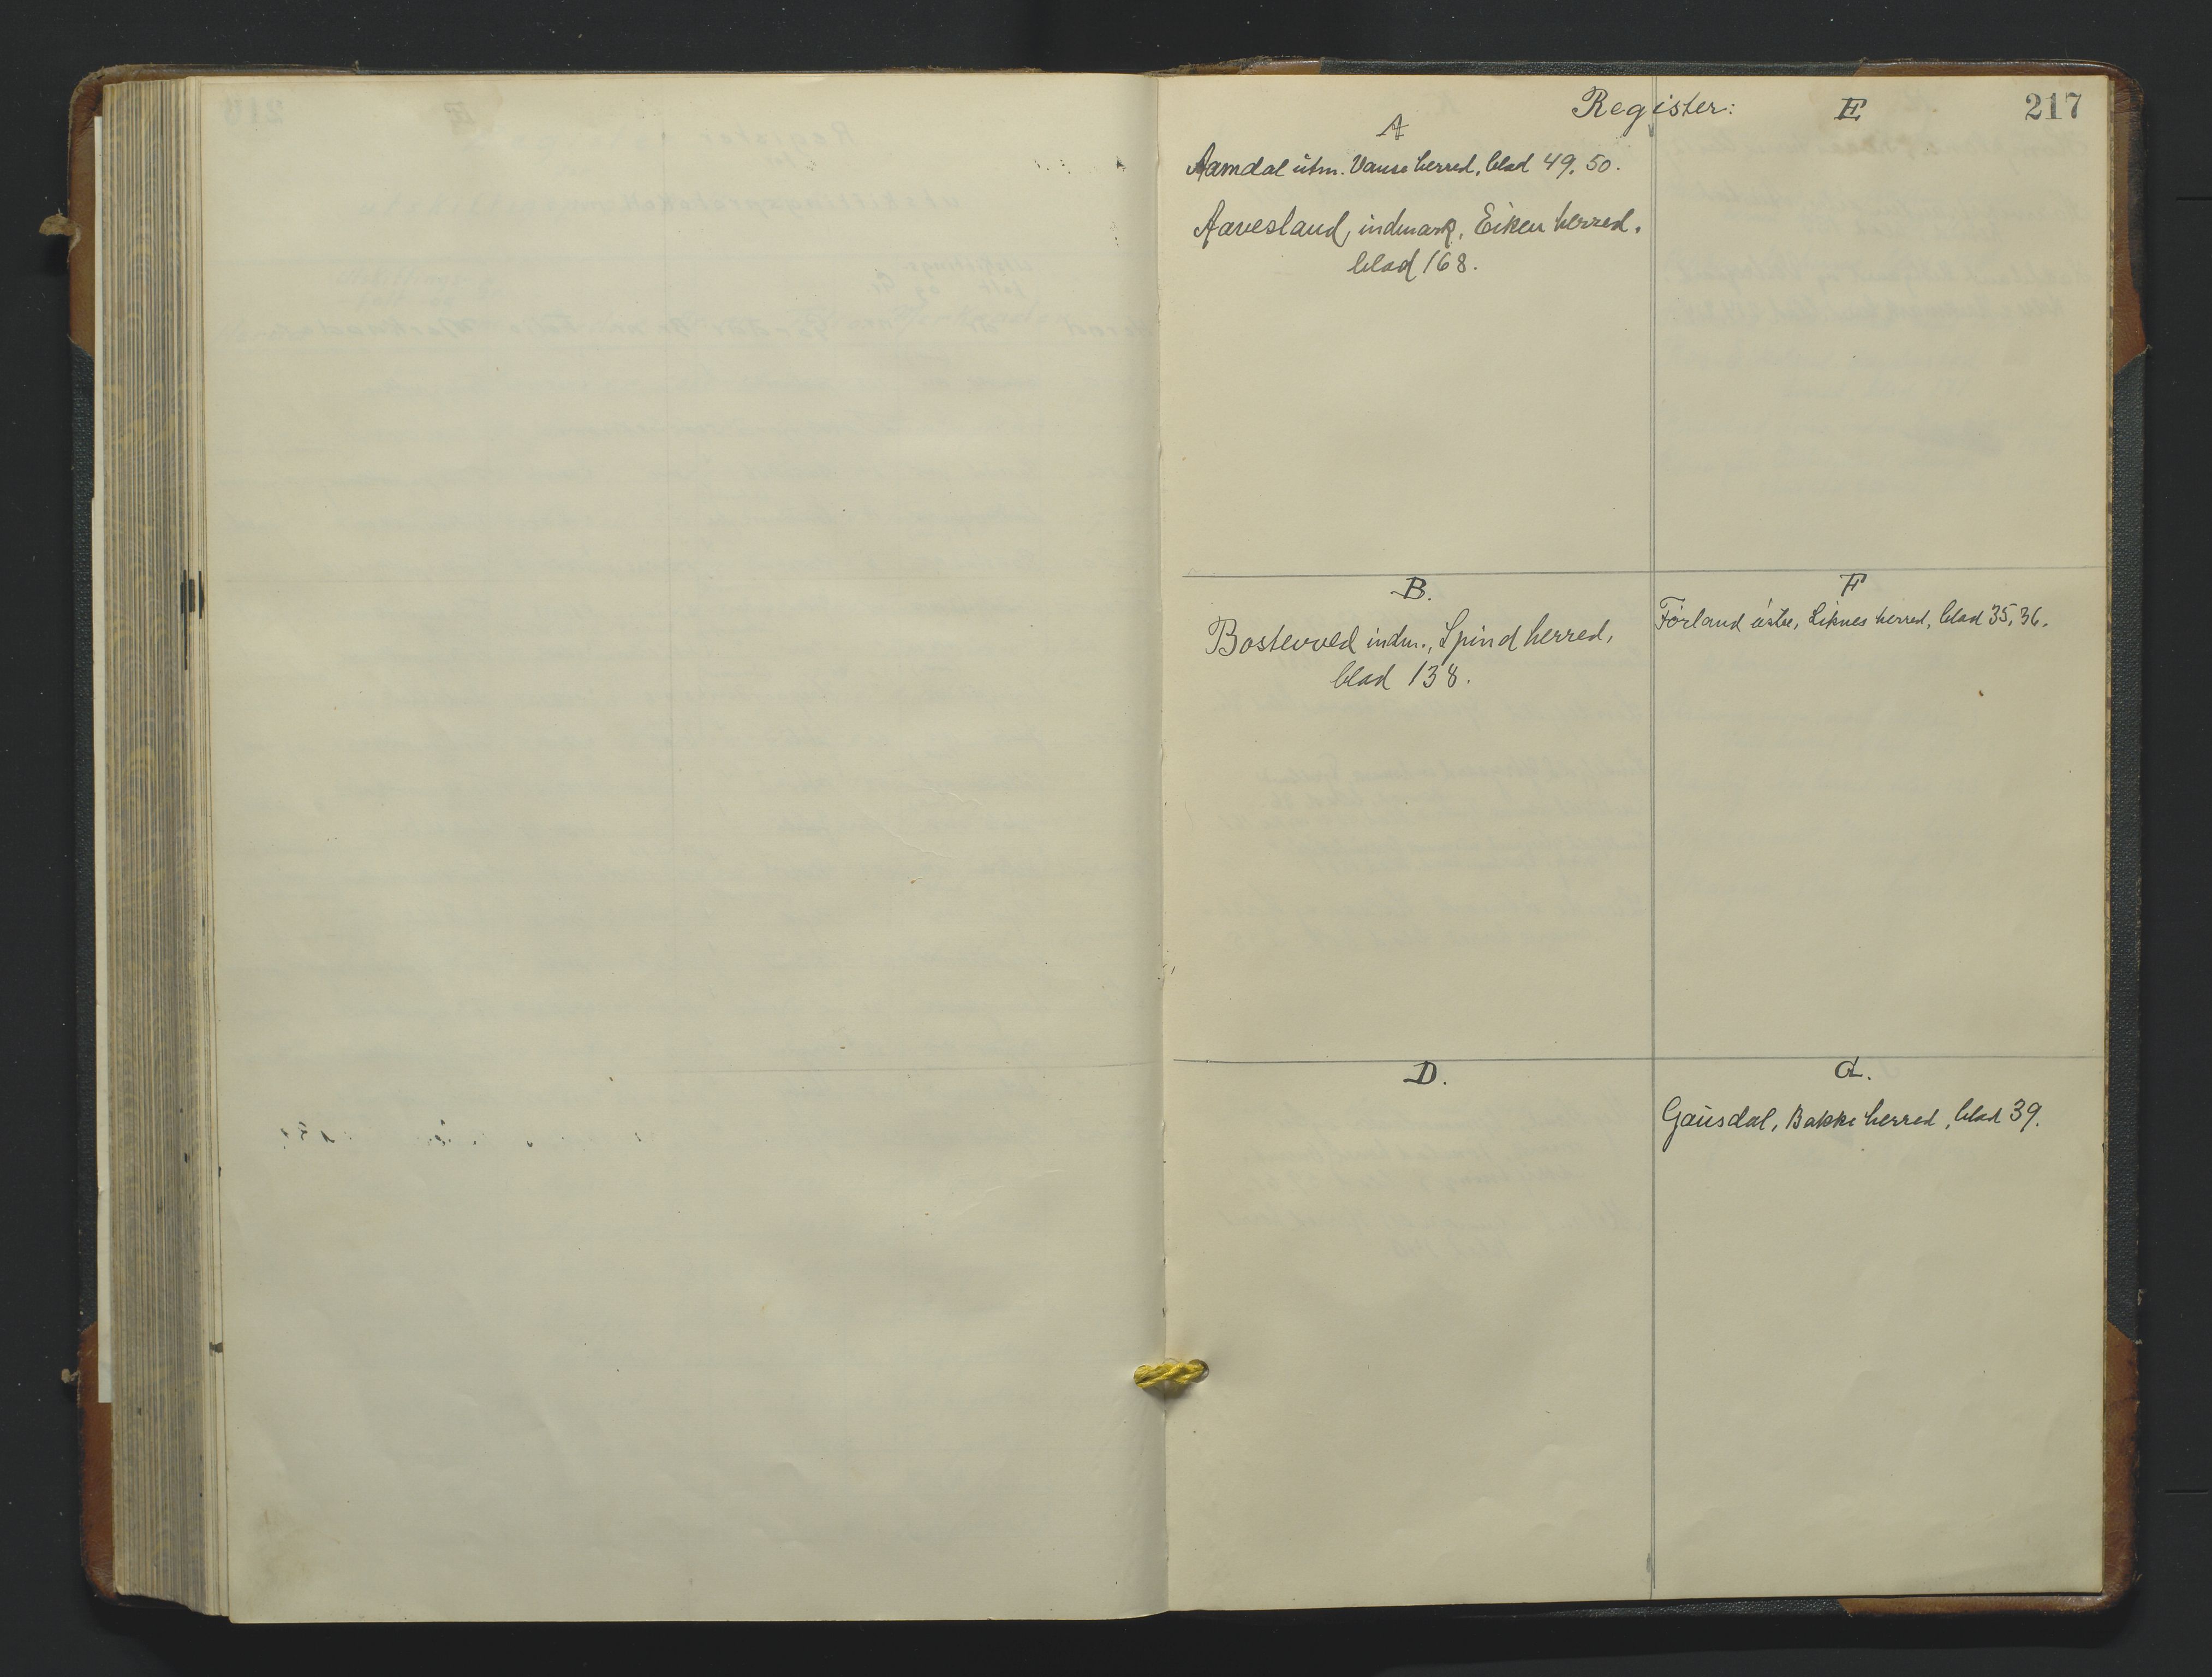 Register:
217
A
Aamdal utm. Vanse herred, blad 49, 50.
Aavesland, indmark, Eiken herred.
blad 168.
B.
Bostevold indm., Spind herred,
blad 138.
D.
E
F
Førland østre, Liknes herred, blad 35, 36.
G.
Gausdal, Bakke herred, blad 39.